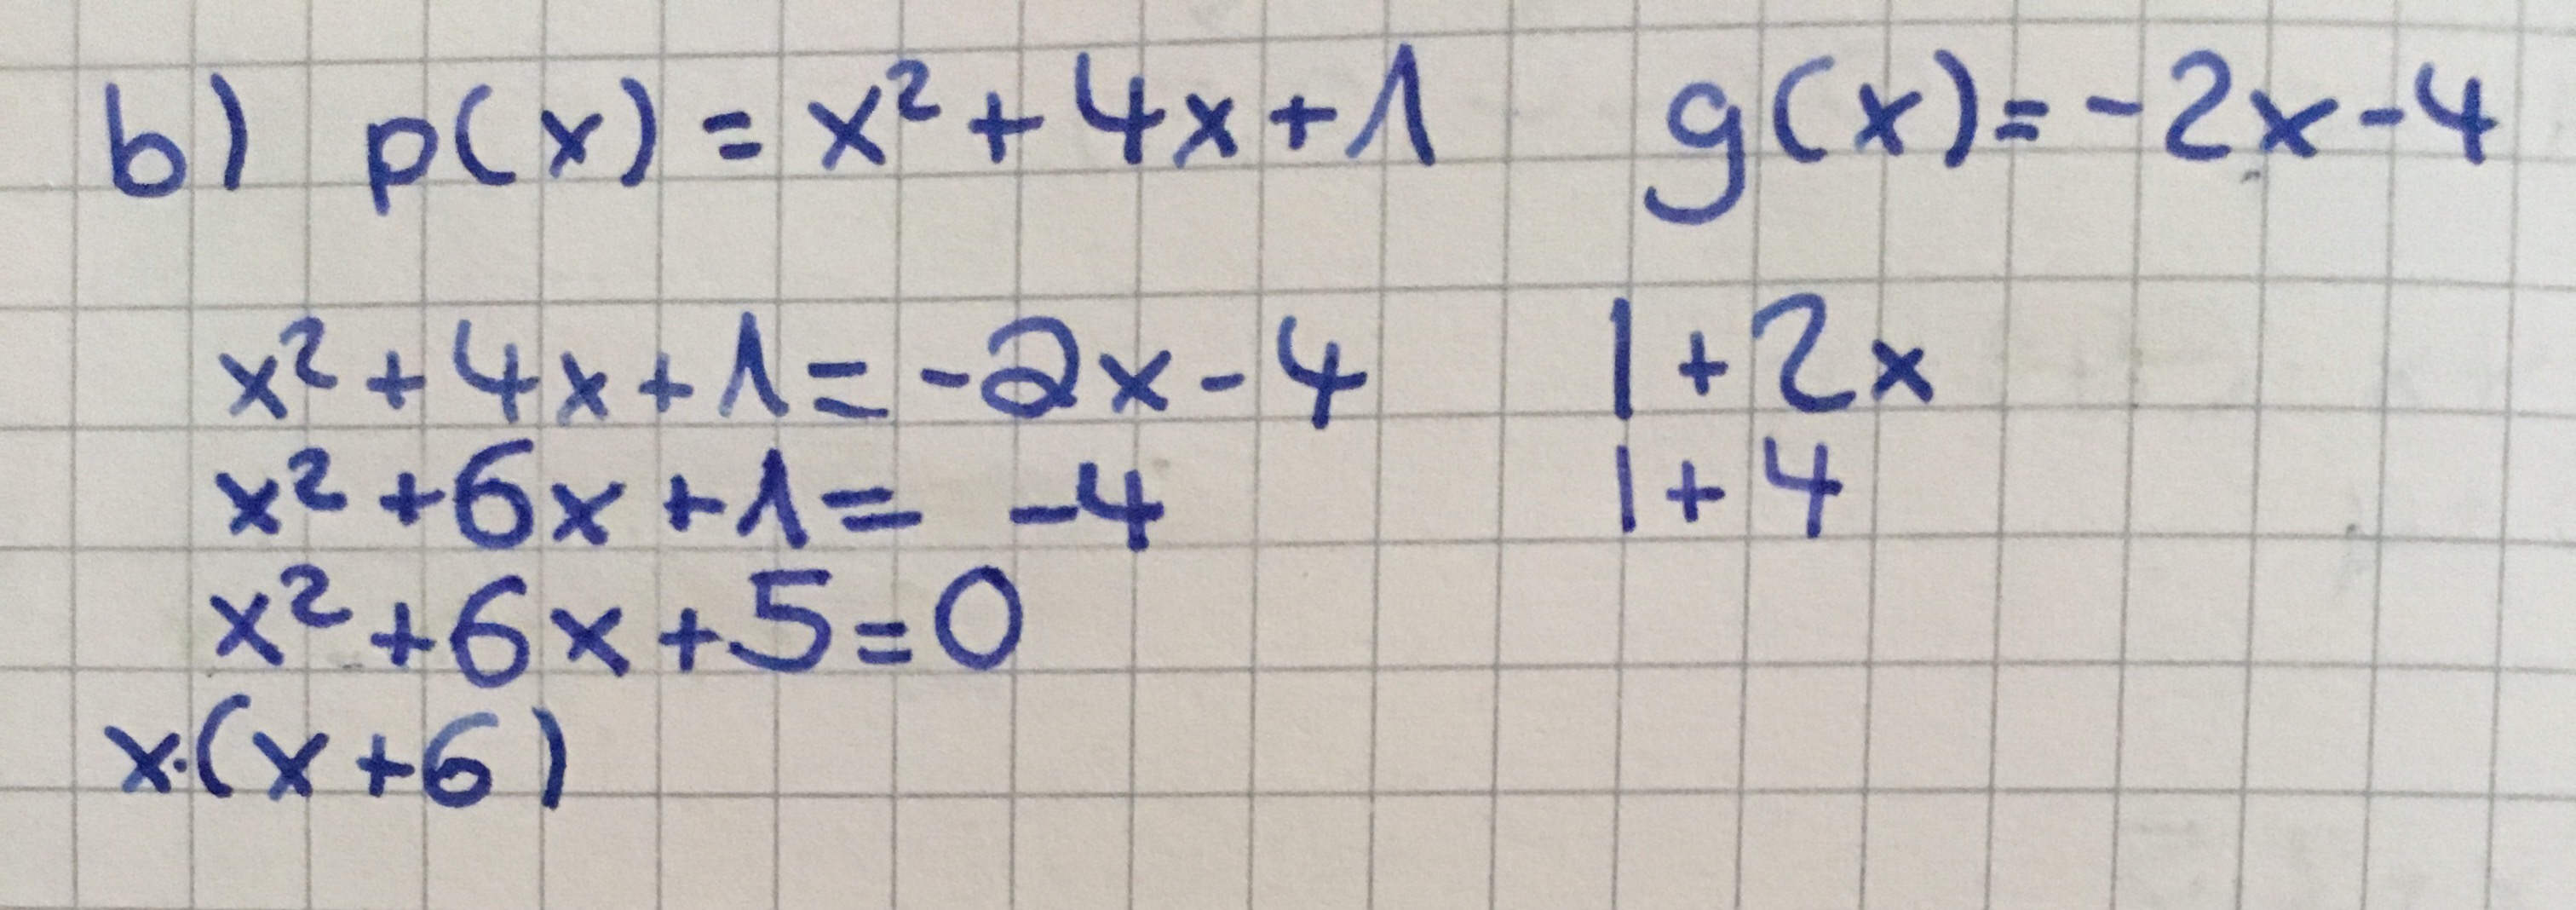 b) p(x) = x² + 4x + 1 g(x) = -2x - 4
x² + 4x + 1 = -2x - 4 | + 2x
x² + 6x + 1 = -4 | + 4
x² + 6x + 5 = 0
x·(x + 6)